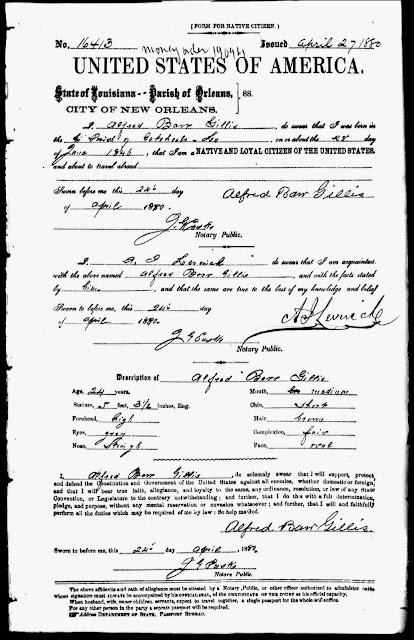 (FORM FOR NATIVE CITIZEN.)
No. 16413 Issued April 27 1880
money order
UNITED STATES OF AMERICA.
State of Louisiana--Parish of Orleans, } ss.
CITY OF NEW ORLEANS,
I, Alfred Barr Gillis, do swear that I was born in
the of on or about the 28th day
of June 1846, that I am a NATIVE AND LOYAL CITIZEN OF THE UNITED STATES,
and about to travel abroad.
Sworn before me this 24th day
of April 1880.
Alfred Barr Gillis
Notary Public.
I, do swear that I am acquainted
with the above named Alfred Barr Gillis, and with the facts stated
by him, and that the same are true to the best of my knowledge and belief
Sworn to before me, this 24th day
of April 1880.
Notary Public.
Description of Alfred Barr Gillis
Age, years, Mouth, medium
Stature, 5 feet, 3½ inches, Eng. Chin, short
Forehead, high Hair brown
Eyes, grey Complexion, fair
Nose, Straight Face, oval
I, Alfred Barr Gillis, do solemnly swear that I will support, protect
and defend the Constitution and Government of the United States against all enemies, whether domestic or foreign,
and that I will bear true faith, allegiance, and loyalty to the same, any ordinance, resolution, or law of any State
Convention, or Legislature to the contrary notwithstanding; and further, that I do this with a full determination,
pledge, and purpose, without any mental reservation or envasion whatsoever; and further, that I will and faithfully
perform all the duties which may be required of me by law: So help me God.
Alfred Barr Gillis.
Sworn to before me, this 24th day April, 1880
Notary Public.
The above affidavits and oath of allegiance must be attested by a Notary Public, or other officer authorized to administer oaths
whose signature must ALWAYS be accompanied by his OFFICIAL SEAL, of the CERTIFICATE OF THE COURT as to his official capacity.
When husband, wife, minor children, servants, expect to travel together, a single passport for the whole will suffice.
For any other person in the party a separate passport will be required.
Address DEPARTMENT OF STATE, PASSPORT BUREAU.